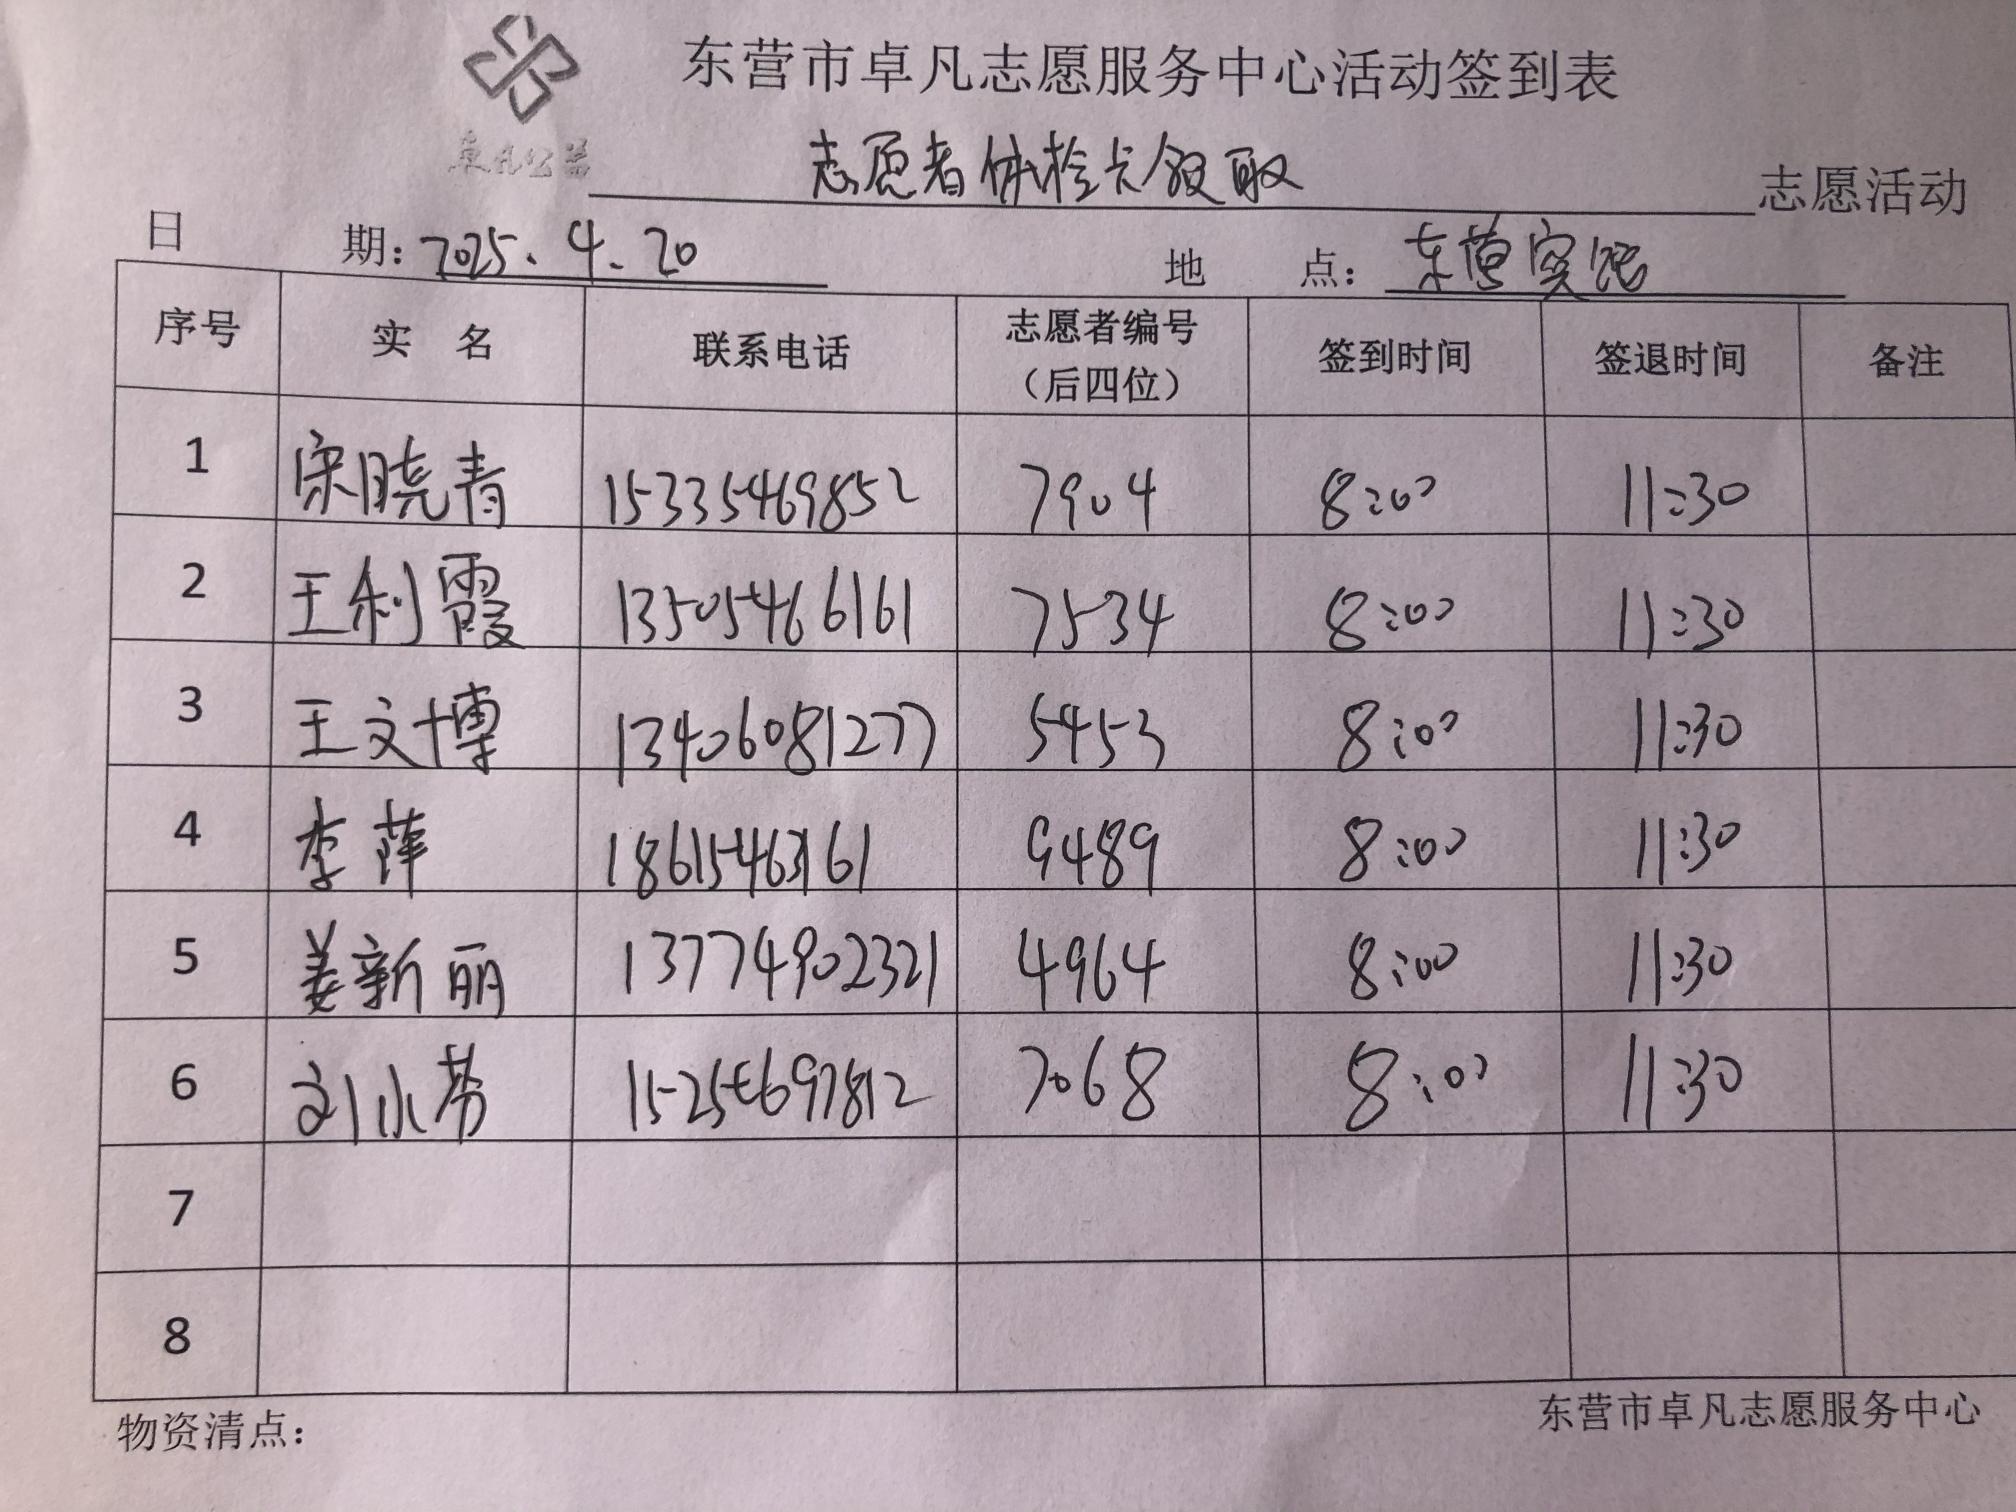 东营市卓凡志愿服务中心活动签到表
卓凡公益
志愿者体检卡领取 志愿活动
日 期：2025.4.20 地 点：东营宾馆
序号 实 名 联系电话 志愿者编号（后四位） 签到时间 签退时间 备注
1 宋晓青 15335469852 7904 8:00 11:30
2 王利霞 13505466161 7534 8:00 11:30
3 王文博 13406081277 5453 8:00 11:30
4 李萍 9489 8:00 11:30
5 姜新丽 13774902321 4964 8:00 11:30
6 刘小芳 7068 8:00 11:30
7
8
物资清点： 东营市卓凡志愿服务中心